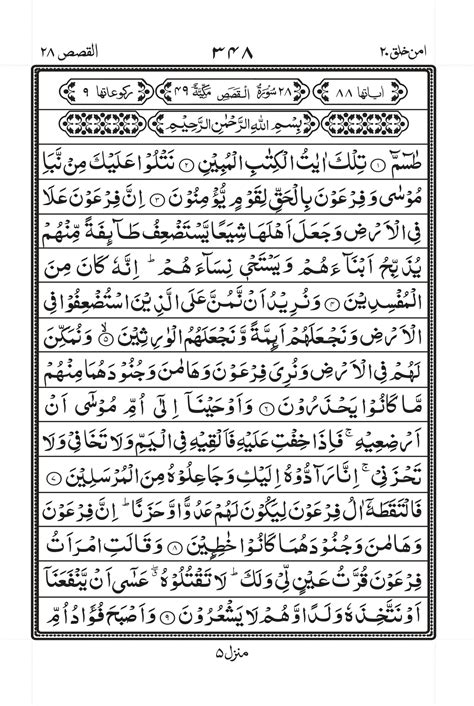 امن خلق ۲۰ ۳۴۸ القصص ۲۸
اٰیاتها ۸۸ ۲۸ سُوْرَةُ الْقَصَصِ مَكِّيَّةٌ ۴۹ رکوعاتها ۹
بِسْمِ اللهِ الرَّحْمٰنِ الرَّحِيْمِ
طٰسٓمّٓ ۝۱ تِلْكَ اٰيٰتُ الْكِتٰبِ الْمُبِيْنِ ۝۲ نَتْلُوْا عَلَيْكَ مِنْ نَّبَاِ
مُوْسٰى وَفِرْعَوْنَ بِالْحَقِّ لِقَوْمٍ يُّؤْمِنُوْنَ ۝۳ اِنَّ فِرْعَوْنَ عَلَا
فِى الْاَرْضِ وَجَعَلَ اَهْلَهَا شِيَعًا يَّسْتَضْعِفُ طَآئِفَةً مِّنْهُمْ
يُذَبِّحُ اَبْنَآءَهُمْ وَيَسْتَحْىٖ نِسَآءَهُمْ ؕ اِنَّهٗ كَانَ مِنَ
الْمُفْسِدِيْنَ ۝۴ وَنُرِيْدُ اَنْ نَّمُنَّ عَلَى الَّذِيْنَ اسْتُضْعِفُوْا فِى
الْاَرْضِ وَنَجْعَلَهُمْ اَئِمَّةً وَّنَجْعَلَهُمُ الْوٰرِثِيْنَ ۝۵ وَنُمَكِّنَ
لَهُمْ فِى الْاَرْضِ وَنُرِىَ فِرْعَوْنَ وَهَامٰنَ وَجُنُوْدَهُمَا مِنْهُمْ
مَّا كَانُوْا يَحْذَرُوْنَ ۝۶ وَاَوْحَيْنَاۤ اِلٰٓى اُمِّ مُوْسٰٓى اَنْ
اَرْضِعِيْهِ ۚ فَاِذَا خِفْتِ عَلَيْهِ فَاَلْقِيْهِ فِى الْيَمِّ وَلَا تَخَافِىْ وَلَا
تَحْزَنِىْ ۚ اِنَّا رَآدُّوْهُ اِلَيْكِ وَجَاعِلُوْهُ مِنَ الْمُرْسَلِيْنَ ۝۷
فَالْتَقَطَهٗۤ اٰلُ فِرْعَوْنَ لِيَكُوْنَ لَهُمْ عَدُوًّا وَّحَزَنًا ؕ اِنَّ فِرْعَوْنَ
وَهَامٰنَ وَجُنُوْدَهُمَا كَانُوْا خٰطِئِيْنَ ۝۸ وَقَالَتِ امْرَاَتُ
فِرْعَوْنَ قُرَّتُ عَيْنٍ لِّىْ وَلَكَ ؕ لَا تَقْتُلُوْهُ ۖ عَسٰٓى اَنْ يَّنْفَعَنَاۤ
اَوْ نَتَّخِذَهٗ وَلَدًا وَّهُمْ لَا يَشْعُرُوْنَ ۝۹ وَاَصْبَحَ فُؤَادُ اُمِّ
منزل ۵